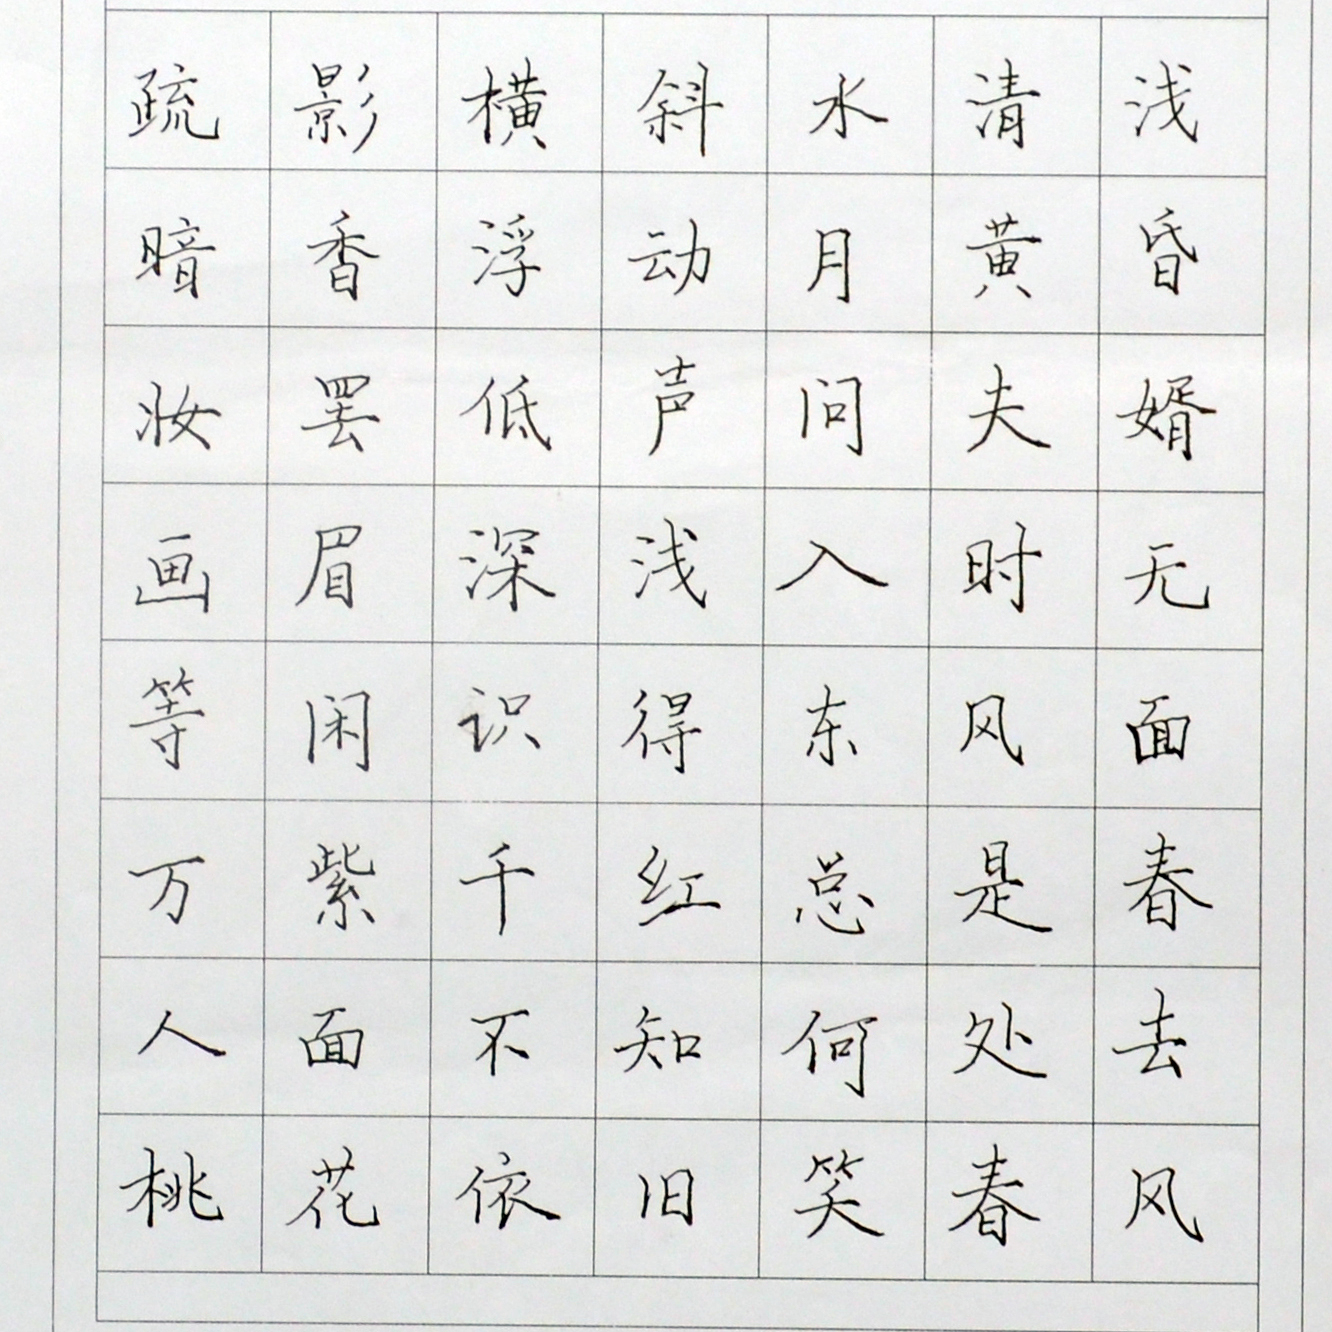 疏影横斜水清浅
暗香浮动月黄昏
妆罢低声问夫婿
画眉深浅入时无
等闲识得东风面
万紫千红总是春
人面不知何处去
桃花依旧笑春风